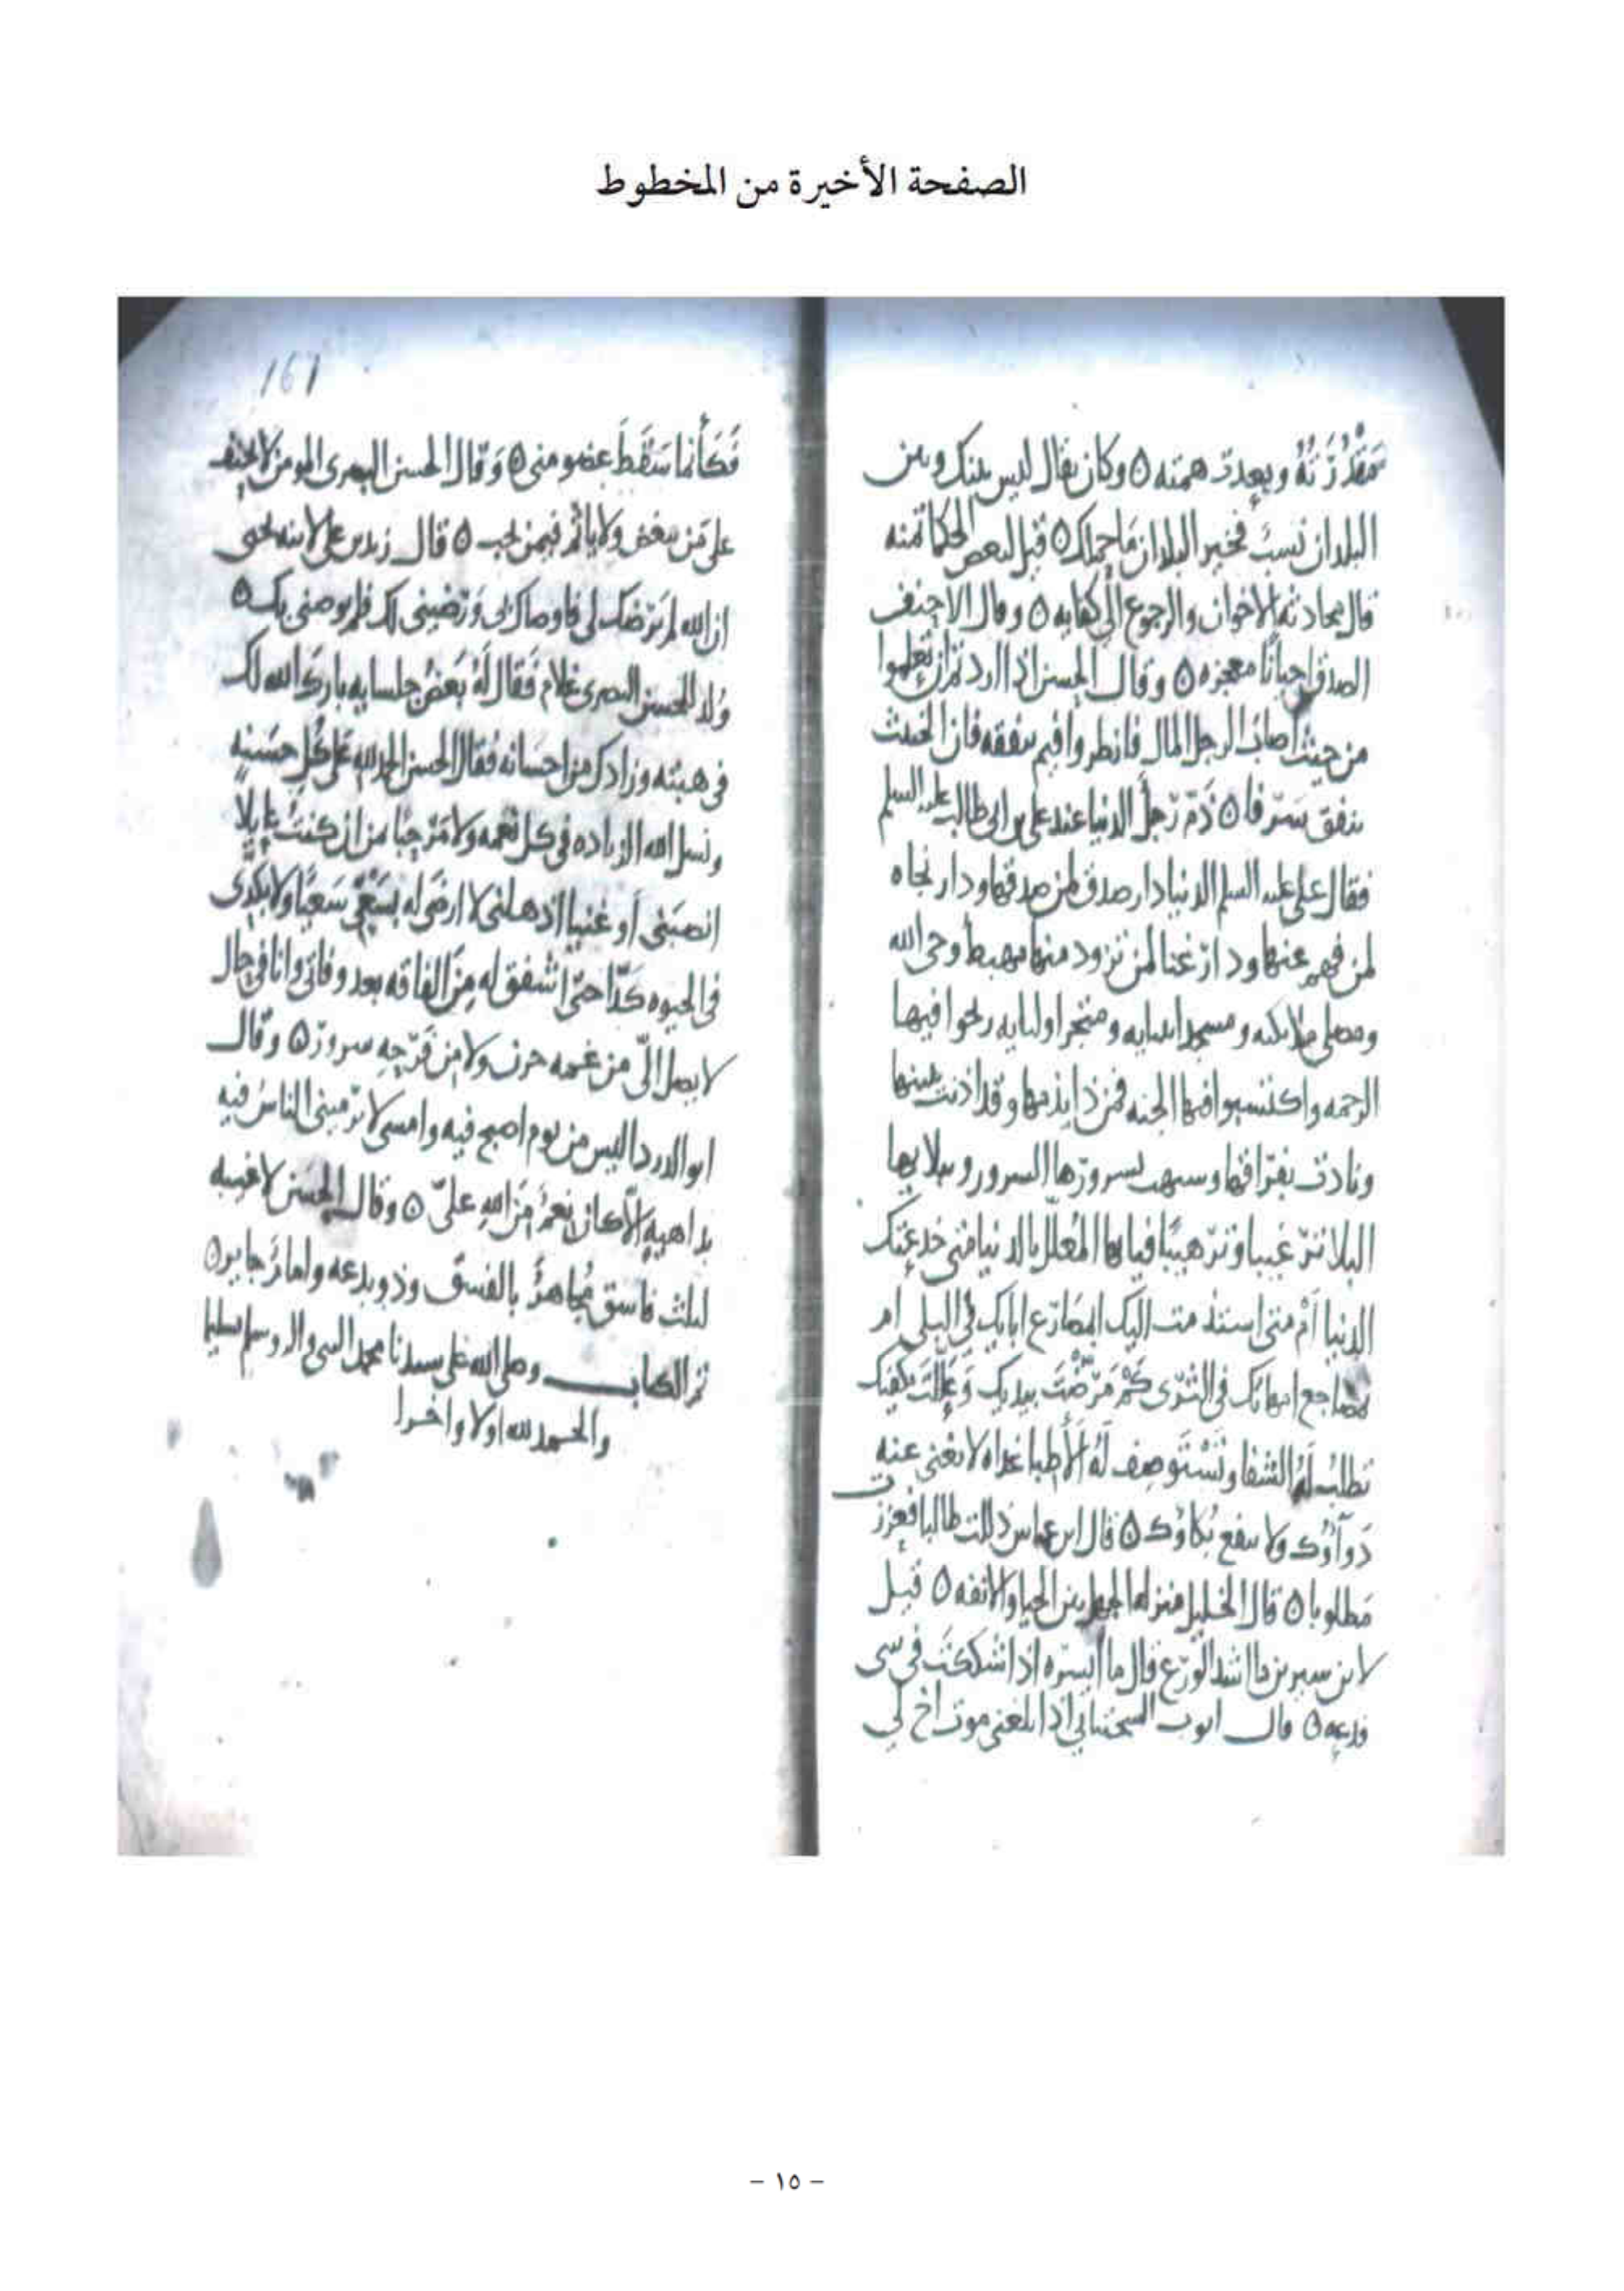 الصفحة الأخيرة من المخطوط
مقدرته وبعدت همته ه وكان يقال ليس بينك وبين
البلدان نسب فخير البلدان ما حملك ه قيل لبعض الحكما
قال محادثة الاخوان والرجوع الى كفايه ه وقال الاحنف
الصدق احيانا معجزه ه وقال الحسن اذا اردتم ان تعلموا
من حيث اصاب الرجل المال فانظروا فيم ينفقه فان الخبيث
ينفق سرفا ه ذم رجل الدنيا عند علي بن ابي طالب عليه السلم
فقال علي عليه السلم الدنيا دار صدق لمن صدقها ودار نجاه
لمن فهم عنها ودار غنا لمن تزود منها مهبط وحي الله
ومصلى ملايكته ومسجد انبيايه ومتجر اوليايه ربحوا فيها
الرحمه واكتسبوا فيها الجنه فمن ذا يذمها وقد اذنت ببينها
ونادت بفراقها وشبهت بسرورها السرور وببلايها
البلا ترغيبا وترهيبا فيا ايها المعلل بالدنيا متى خدعتك
الدنيا أم متى اليك ابمصارع ابايك في البلى ام
بمضاجع امهاتك في الثرى كم مرضت بيديك وعللت بكفيك
تطلب له الشفا وتستوصف له الأطبا غداه لا يغني عنه
دوآؤك ولا ينفع بكاؤك ه قال ابن عباس ذللت طالبا فعززت
مطلوبا ه قال الخليل منزله الجهل بين الحيا والانفه ه قيل
لابن سيرين ما اشد الورع قال ما ايسره اذا شككت في شى
فدعه ه قال ايوب السختياني اذا بلغني موت اخ لي
161
فكأنما سقط عضو مني ه وقال الحسن البصرى المومن لا يحيف
على من يبغض ولا يأثم فيمن يحب ه قال زيد بن علي لابنه يحيى
ان الله لم يرضك لي فاوصاك بى ورضيني لك فلم يوصني بك ه
ولد للحسن البصرى غلام فقال له بعض جلسايه بارك الله لك
في هبته وزادك من احسانه فقال الحسن الحمد لله على كل حسنه
ونسل الله الزياده في كل نعمه ولا مرحبا بمن ان كنت عايلا
انصبني أو غنيا اذهلني لا ارضى له بسعيي سعيا ولا بكدى
في الحيوه كدا حتى اشفق له من الفاقه بعد وفاتي وانا في حال
لا يصل الي من غمه حزن ولا من فرحه سرور ه وقال
ابو الدردا ليس من يوم اصبح فيه وامسى لا يرميني الناس فيه
بداهيه الا كان نعمة من الله علي ه وقال الحسن لا غيبه
لثلث فاسق مجاهر بالفسق وذو بدعه وامام جاير ه
تم الكتاب وصلى الله على سيدنا محمد النبي واله وسلم تسليما
والحمد لله اولا واخرا
- ١٥ -